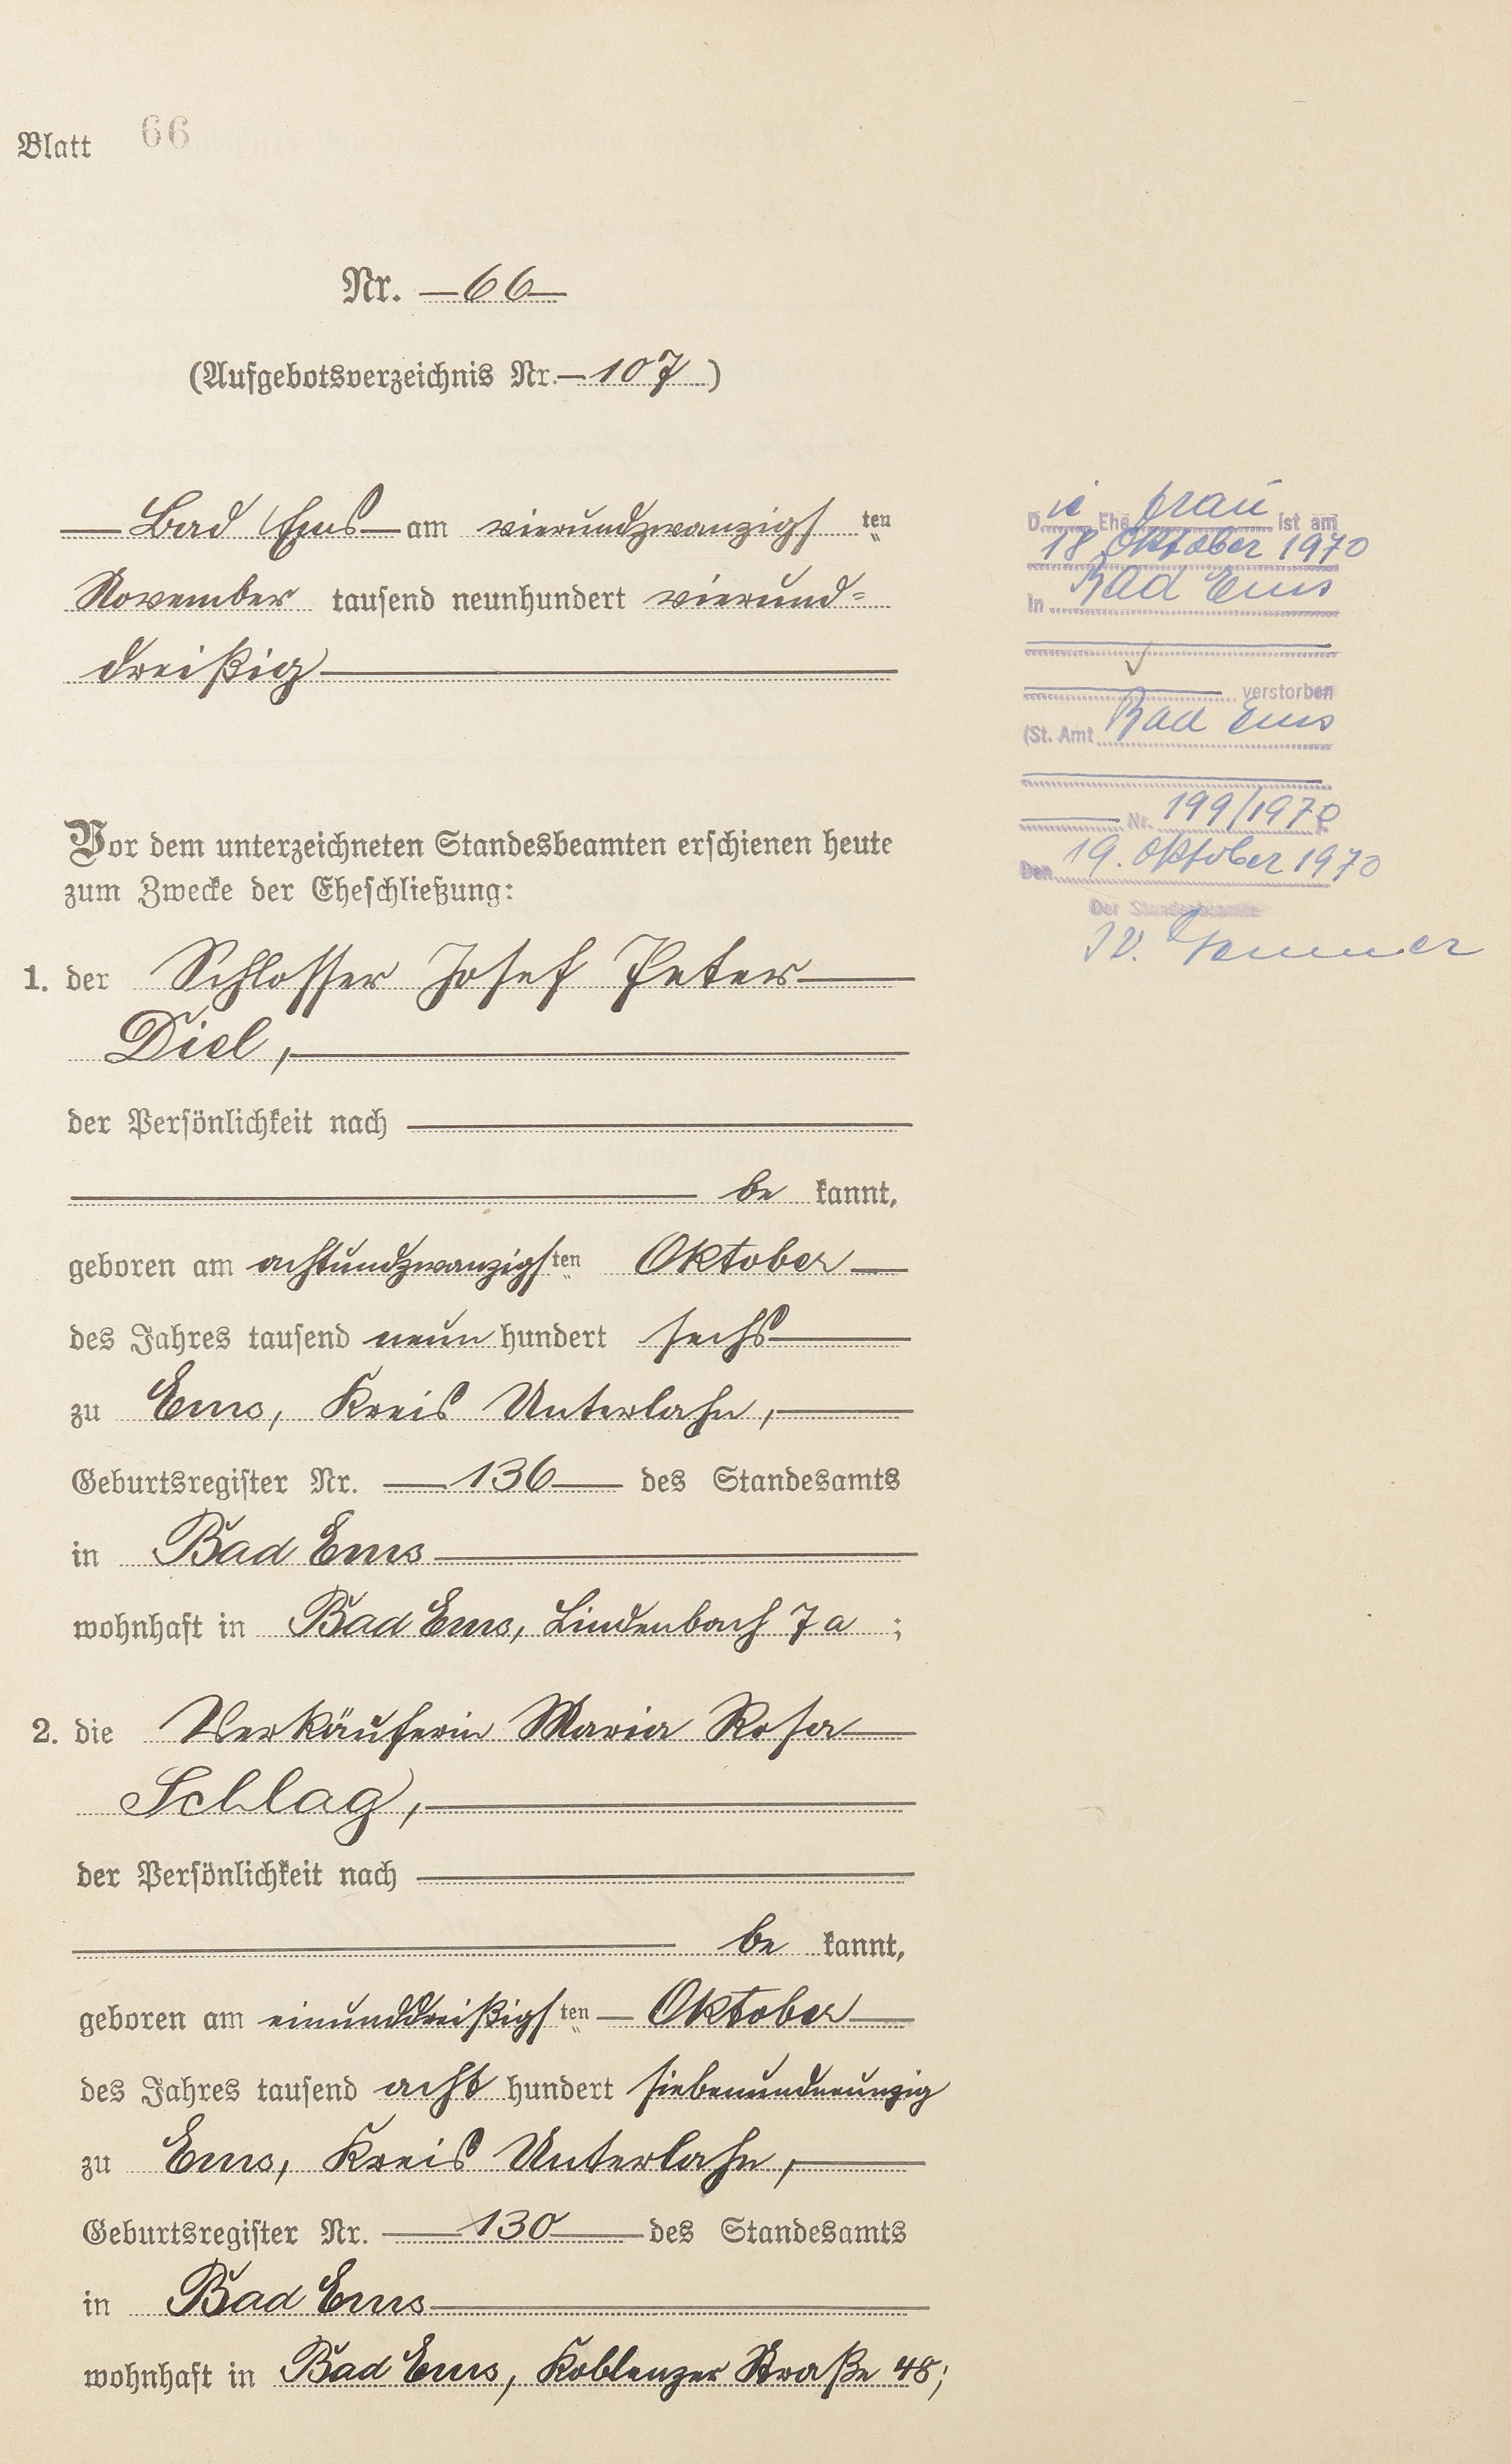 Blatt 66
Nr. 66
(Aufgebotsverzeichnis Nr. 107)
Bad Ems am vierundzwanzigsten
November tausend neunhundert vierund=
dreißig
Vor dem unterzeichneten Standesbeamten erschienen heute
zum Zwecke der Eheschließung:
1. der Schlosser Josef Peter
Diel,
der Persönlichkeit nach
be kannt,
geboren am achtundzwanzigsten Oktober
des Jahres tausend neun hundert sechs
zu Ems, Kreis Unterlahn,
Geburtsregister Nr. 136 des Standesamts
in Bad Ems
wohnhaft in Bad Ems, Lindenbach 7a ;
2. die Verkäuferin Maria Rosa
Schlag,
der Persönlichkeit nach
be kannt,
geboren am einunddreißigsten Oktober
des Jahres tausend acht hundert siebenundneunzig
zu Ems, Kreis Unterlahn,
Geburtsregister Nr. 130 des Standesamts
in Bad Ems
wohnhaft in Bad Ems, Koblenzer Straße 48;
Die Ehefrau ist am
18. Oktober 1970
In Bad Ems
verstorben
(St. Amt Bad Ems
Nr. 199/1970
Den 19. Oktober 1970
Der Standesbeamte
IV.